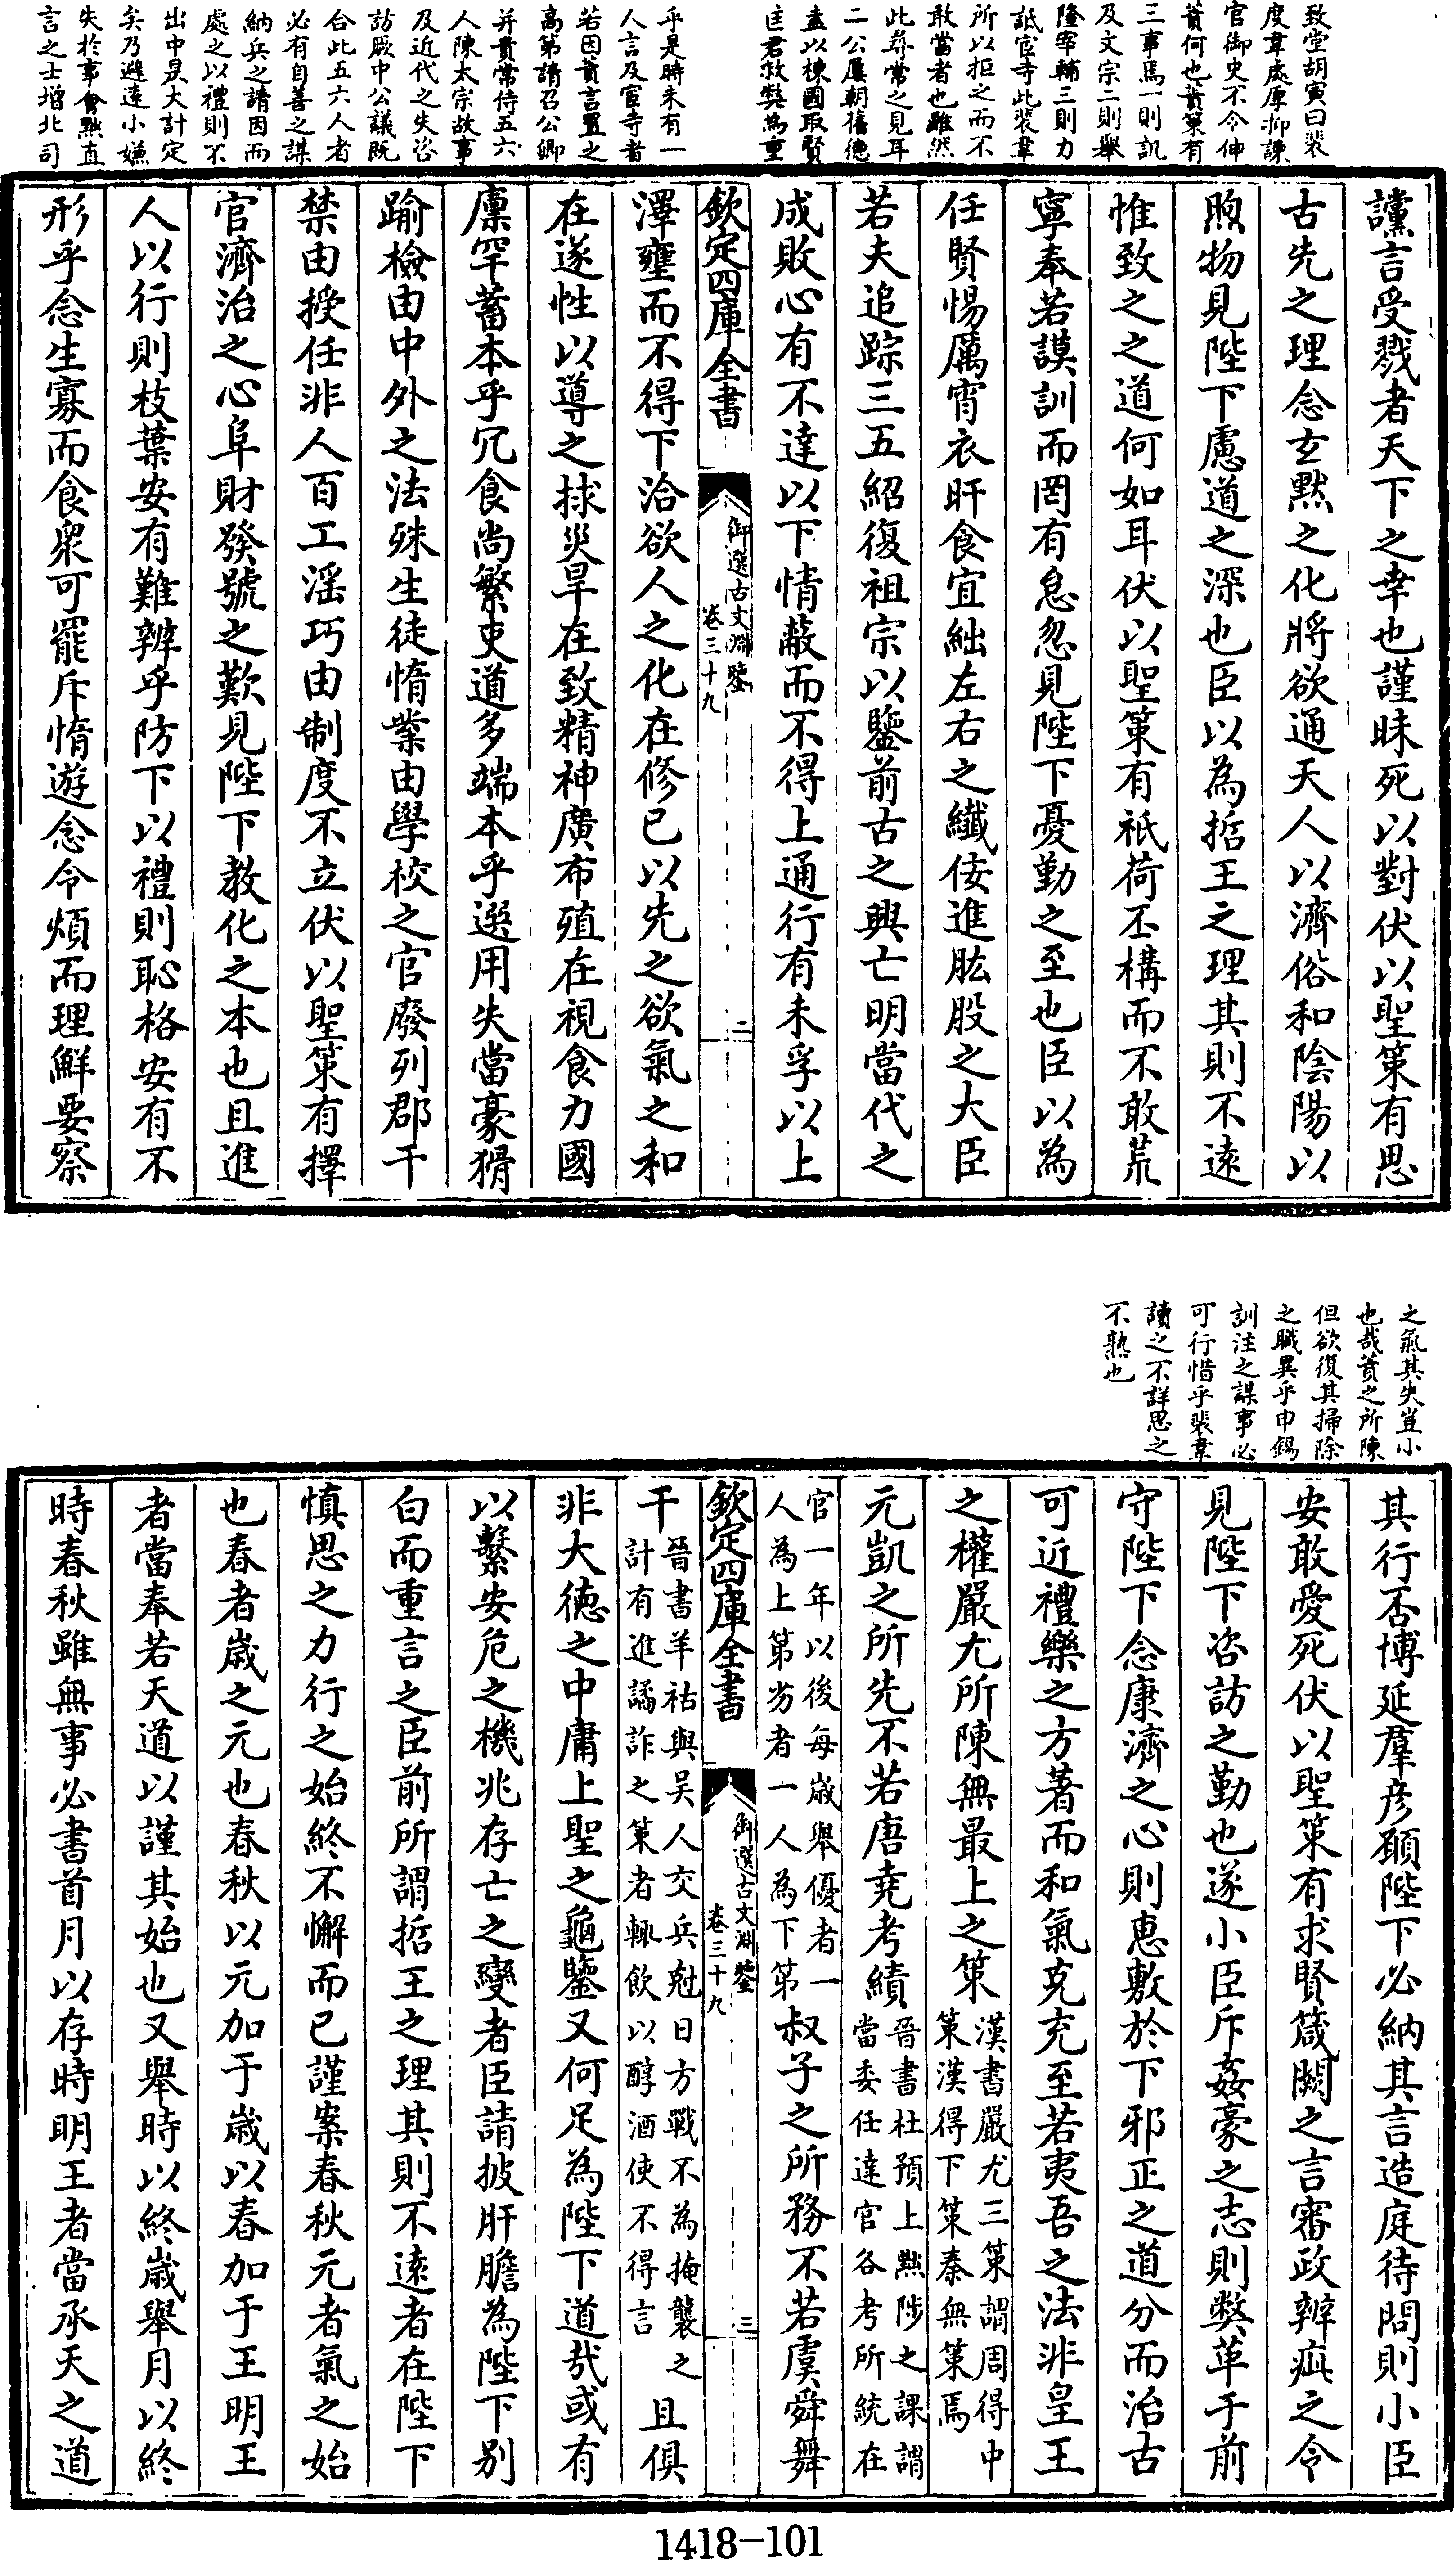 致堂胡寅曰裴
度韋處厚抑諫
官御史不令伸
蕡何也蕡策有
三事焉一則譏
及文宗二則舉
隆宰輔三則力
詆宦寺此裴韋
所以拒之而不
敢當者也雖然
此葬常之見耳
二公屢朝舊德
盍以棟國取賢
匡君救弊為重
乎是時未有一
人言及宦寺者
若因蕡言置之
高第請召公卿
并賁常侍五六
人陳太宗故事
及近代之失咨
訪厥中公議既
合此五六人者
必有自善之謀
納兵之請因而
處之以禮則不
出中是大計定
矣乃避遠小嫌
失於事會黜直
言之士增北司
讜言受戮者天下之幸也謹昧死以對伏以聖策有思
古先之理念玄默之化將欲通天人以濟俗和陰陽以
煦物見陛下慮道之深也臣以為哲王之理其則不遠
惟致之之道何如耳伏以聖策有祇荷丕構而不敢荒
寧奉若謨訓而罔有怠忽見陛下憂勤之至也臣以為
任賢惕厲宵衣旰食宜絀左右之纖佞進肱股之大臣
若夫追踪三五紹復祖宗以鑒前古之興亡明當代之
成敗心有不達以下情蔽而不得上通行有未孚以上
欽定四庫全書
御選古文淵鑒
卷三十九
二
澤壅而不得下洽欲人之化在修已以先之欲氣之和
在遂性以導之捄災旱在致精神廣布殖在視食力國
廩罕蓄本乎冗食尚繁吏道多端本乎選用失當豪猾
踰檢由中外之法殊生徒惰業由學校之官廢列郡干
禁由授任非人百工淫巧由制度不立伏以聖策有擇
官濟治之心阜財發號之歎見陛下教化之本也且進
人以行則枝葉安有難辨乎防下以禮則恥格安有不
形乎念生寡而食衆可罷斥惰遊念令煩而理鮮要察
之氣其失豈小
也哉蕡之所陳
但欲復其掃除
之職異乎申錫
訓注之謀事必
可行惜乎裴韋
讀之不詳思之
不熟也
其行否博延羣彦願陛下必納其言造庭待問則小臣
安敢愛死伏以聖策有求賢箴闕之言審政辨疵之令
見陛下咨訪之勤也遂小臣斥姦豪之志則弊革于前
守陛下念康濟之心則惠敷於下邪正之道分而治古
可近禮樂之方著而和氣克充至若夷吾之法非皇王
之權嚴尤所陳無最上之策漢書嚴尤三策謂周得中
策漢得下策秦無策焉
元凱之所先不若唐堯考績晉書杜預上黜陟之課謂
當委任達官各考所統在
官一年以後每歲舉優者一
人為上第劣者一人為下第叔子之所務不若虞舜舞
欽定四庫全書
御選古文淵鑒
卷三十九
三
干晉書羊祜與吳人交兵尅日方戰不為掩襲之
計有進譎詐之策者輒飲以醇酒使不得言且俱
非大徳之中庸上聖之龜鑒又何足為陛下道哉或有
以繫安危之機兆存亡之變者臣請披肝膽為陛下别
白而重言之臣前所謂哲王之理其則不遠者在陛下
慎思之力行之始終不懈而已謹案春秋元者氣之始
也春者歲之元也春秋以元加于歲以春加于王明王
者當奉若天道以謹其始也又舉時以終歲舉月以終
時春秋雖無事必書首月以存時明王者當承天之道
1418-101